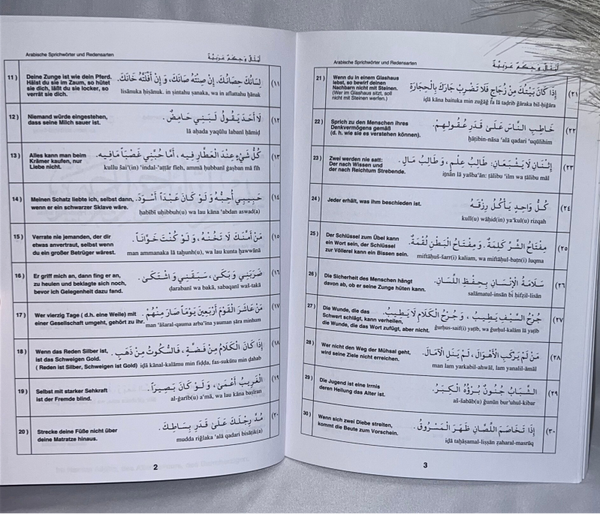 Arabische Sprichwörter und Redensarten
أمثال وحكم عربية
11 ) Deine Zunge ist wie dein Pferd.
Hälst du sie im Zaum, so hütet
sie dich, läßt du sie locker, so
verrät sie dich.
لِسَانُكَ حِصَانُكَ. إِنْ صِنْتَهُ صَانَكَ، وَ إِنْ أَفْلَتَّهُ خَانَكَ.
(١١
lisānuka ḥiṣānuk. in ṣintahu ṣanaka, wa in aflattahu ḫānak
12 ) Niemand würde eingestehen,
dass seine Milch sauer ist.
لَا أَحَدَ يَقُولُ لَبَنِي حَامِضٌ.
(١٢
lā aḥada yaqūlu labanī ḥāmiḍ
13 ) Alles kann man beim
Krämer kaufen, nur
Liebe nicht.
كُلُّ شَيْءٍ عِنْدَ الْعَطَّارِ فِيهِ، أَمَّا حُبَّنِي غَصْبًا مَافِيهِ.
(١٣
kullu šai'(in) 'indal-'aṭṭār fīeh, ammā ḥubbanī ġaṣban mā fīh
14 ) Meinen Schatz liebte ich, selbst dann,
wenn er ein schwarzer Sklave wäre.
حَبِيبِي أُحِبُّهُ وَ لَوْ كَانَ عَبْدًا أَسْوَدَ.
(١٤
ḥabībī uḥibbuh(u) wa lau kāna 'abdan aswad(a)
15 ) Verrate nie jemanden, der dir
etwas anvertraut, selbst wenn
du ein großer Betrüger wärest.
مَنْ أَمَّنَكَ لَا تَخُنْهُ، وَ لَوْ كُنْتَ خَوَّانًا.
(١٥
man ammanaka lā taḫunh(u), wa lau kunta ḫawwānā
16 ) Er griff mich an, dann fing er an,
zu heulen und beklagte sich noch,
bevor ich Gelegenheit dazu fand.
ضَرَبَنِي وَ بَكَى، سَبَقَنِي وَ اشْتَكَى.
(١٦
darabanī wa bakā, sabaqanī wal-takā
17 ) Wer vierzig Tage ( d.h. eine Weile) mit
einer Gesellschaft umgeht, gehört zu ihr.
مَنْ عَاشَرَ الْقَوْمَ أَرْبَعِينَ يَوْمًا صَارَ مِنْهُمْ.
(١٧
man 'āšaral-qauma arba'īna yauman ṣāra minhum
18 ) Wenn das Reden Silber ist,
ist das Schweigen Gold.
( Reden ist Silber, Schweigen ist Gold)
إِذَا كَانَ الْكَلَامُ مِنْ فِضَّةٍ، فَالسُّكُوتُ مِنْ ذَهَبٍ.
(١٨
iḏā kānal-kalāmu min fiḍḍa, fas-sukūtu min ḏahab
19 ) Selbst mit starker Sehkraft
ist der Fremde blind.
الْغَرِيبُ أَعْمَى، وَ لَوْ كَانَ بَصِيرًا.
(١٩
al-ġarīb(u) a'mā, wa lau kāna baṣīran
20 ) Strecke deine Füße nicht über
deine Matratze hinaus.
مُدَّ رِجْلَكَ عَلَى قَدَرِ بِسَاطِكَ.
(٢٠
mudda riǧlaka 'alā qadari bisāṭik(a)
2
Arabische Sprichwörter und Redensarten
أمثال وحكم عربية
21 ) Wenn du in einem Glashaus
lebst, so bewirf deinen
Nachbarn nicht mit Steinen.
(Wer im Glashaus sitzt, soll
nicht mit Steinen werfen).
إِذَا كَانَ بَيْتُكَ مِنْ زُجَاجٍ فَلَا تَضْرِبْ جَارَكَ بِالْحِجَارَةِ.
(٢١
iḏā kāna baituka min zuǧāǧ fa lā taḍrib ǧāraka bil-ḥiǧāra
22 ) Sprich zu den Menschen ihres
Denkvermögens gemäß
(d. h, wie sie es verstehen können).
خَاطِبِ النَّاسَ عَلَى قَدَرِ عُقُولِهِمْ.
(٢٢
ḫāṭibin-nāsa 'alā qadari 'uqūlihim
23 ) Zwei werden nie satt:
Der nach Wissen und
der nach Reichtum Strebende.
إِثْنَانِ لَا يَشْبَعَانِ: طَالِبُ عِلْمٍ، وَ طَالِبُ مَالٍ.
(٢٣
iṯnān lā yašba'ān: ṭālibu 'ilm wa ṭālibu māl
24 ) Jeder erhält, was ihm beschieden ist.
كُلُّ وَاحِدٍ يَأْكُلُ رِزْقَهُ
(٢٤
kull(u) wāḥid(in) ya'kul(u) rizqah
25 ) Der Schlüssel zum Übel kann
ein Wort sein, der Schlüssel
zur Völlerei kann ein Bissen sein.
مِفْتَاحُ الشَّرِّ كَلِمَةٌ. وَ مِفْتَاحُ الْبَطْنِ لُقْمَةٌ.
(٢٥
miftāḥuš-šarr(i) kalīam, wa miftāḥul-baṭn(i) luqma
26 ) Die Sicherheit des Menschen hängt
davon ab, ob er seine Zunge hüten kann.
سَلَامَةُ الْإِنْسَانِ بِحِفْظِ اللِّسَانِ.
(٢٦
salāmatul-insān bi ḥifẓil-lisān
27 ) Die Wunde, die das
Schwert schlägt, kann verheilen,
die Wunde, die das Wort zufügt, aber nicht.
جُرْحُ السَّيْفِ يَطِيبُ، وَ جُرْحُ الْكَلَامِ لَا يَطِيبُ.
(٢٧
ǧurḥus-saif(i) yaṭīb, wa ǧurḥul-kalām lā yaṭīb
28 ) Wer nicht den Weg der Mühsal geht,
wird seine Ziele nicht erreichen.
مَنْ لَمْ يَرْكَبِ الْأَهْوَالَ، لَمْ يَنَلِ الْآمَالَ.
(٢٨
man lam yarkabil-ahwāl, lam yanalil-āmāl
29 ) Die Jugend ist eine Irrnis
deren Heilung das Alter ist.
الشَّبَابُ جُنُونٌ بُرْؤُهُ الْكِبَرُ.
(٢٩
aš-šabāb(u) ǧunūn bur'uhul-kibar
30 ) Wenn sich zwei Diebe streiten,
kommt die Beute zum Vorschein.
إِذَا تَخَاصَمَ اللِّصَّانِ ظَهَرَ الْمَسْرُوقُ.
(٣٠
iḏā taḫāṣamal-liṣṣān ẓaharal-masrūq
3